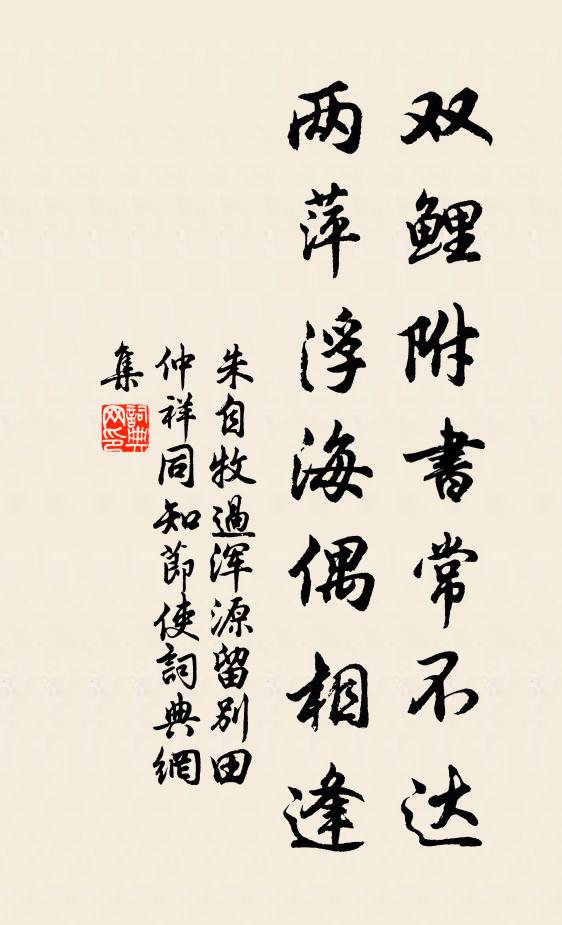 双鲤附书常不达
两萍浮海偶相逢
朱自牧過浑源留别田
仲祥同知節使詞典網
集
詞典
网印